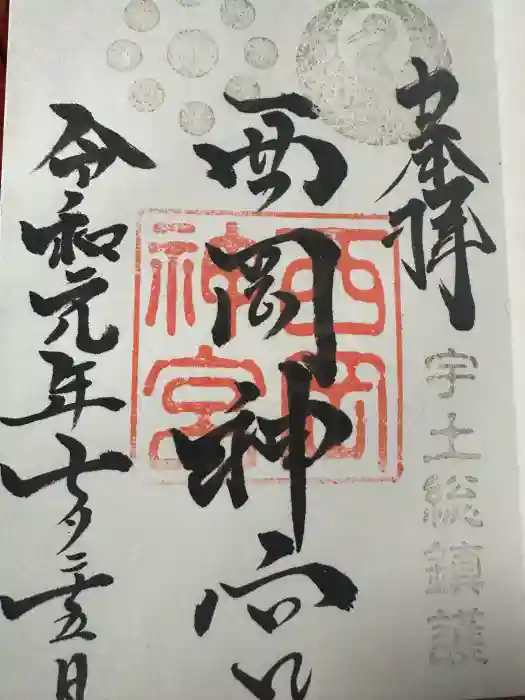 奉拝
宇土総鎮護
西岡神宮
西岡神宮
令和元年七月二十五日